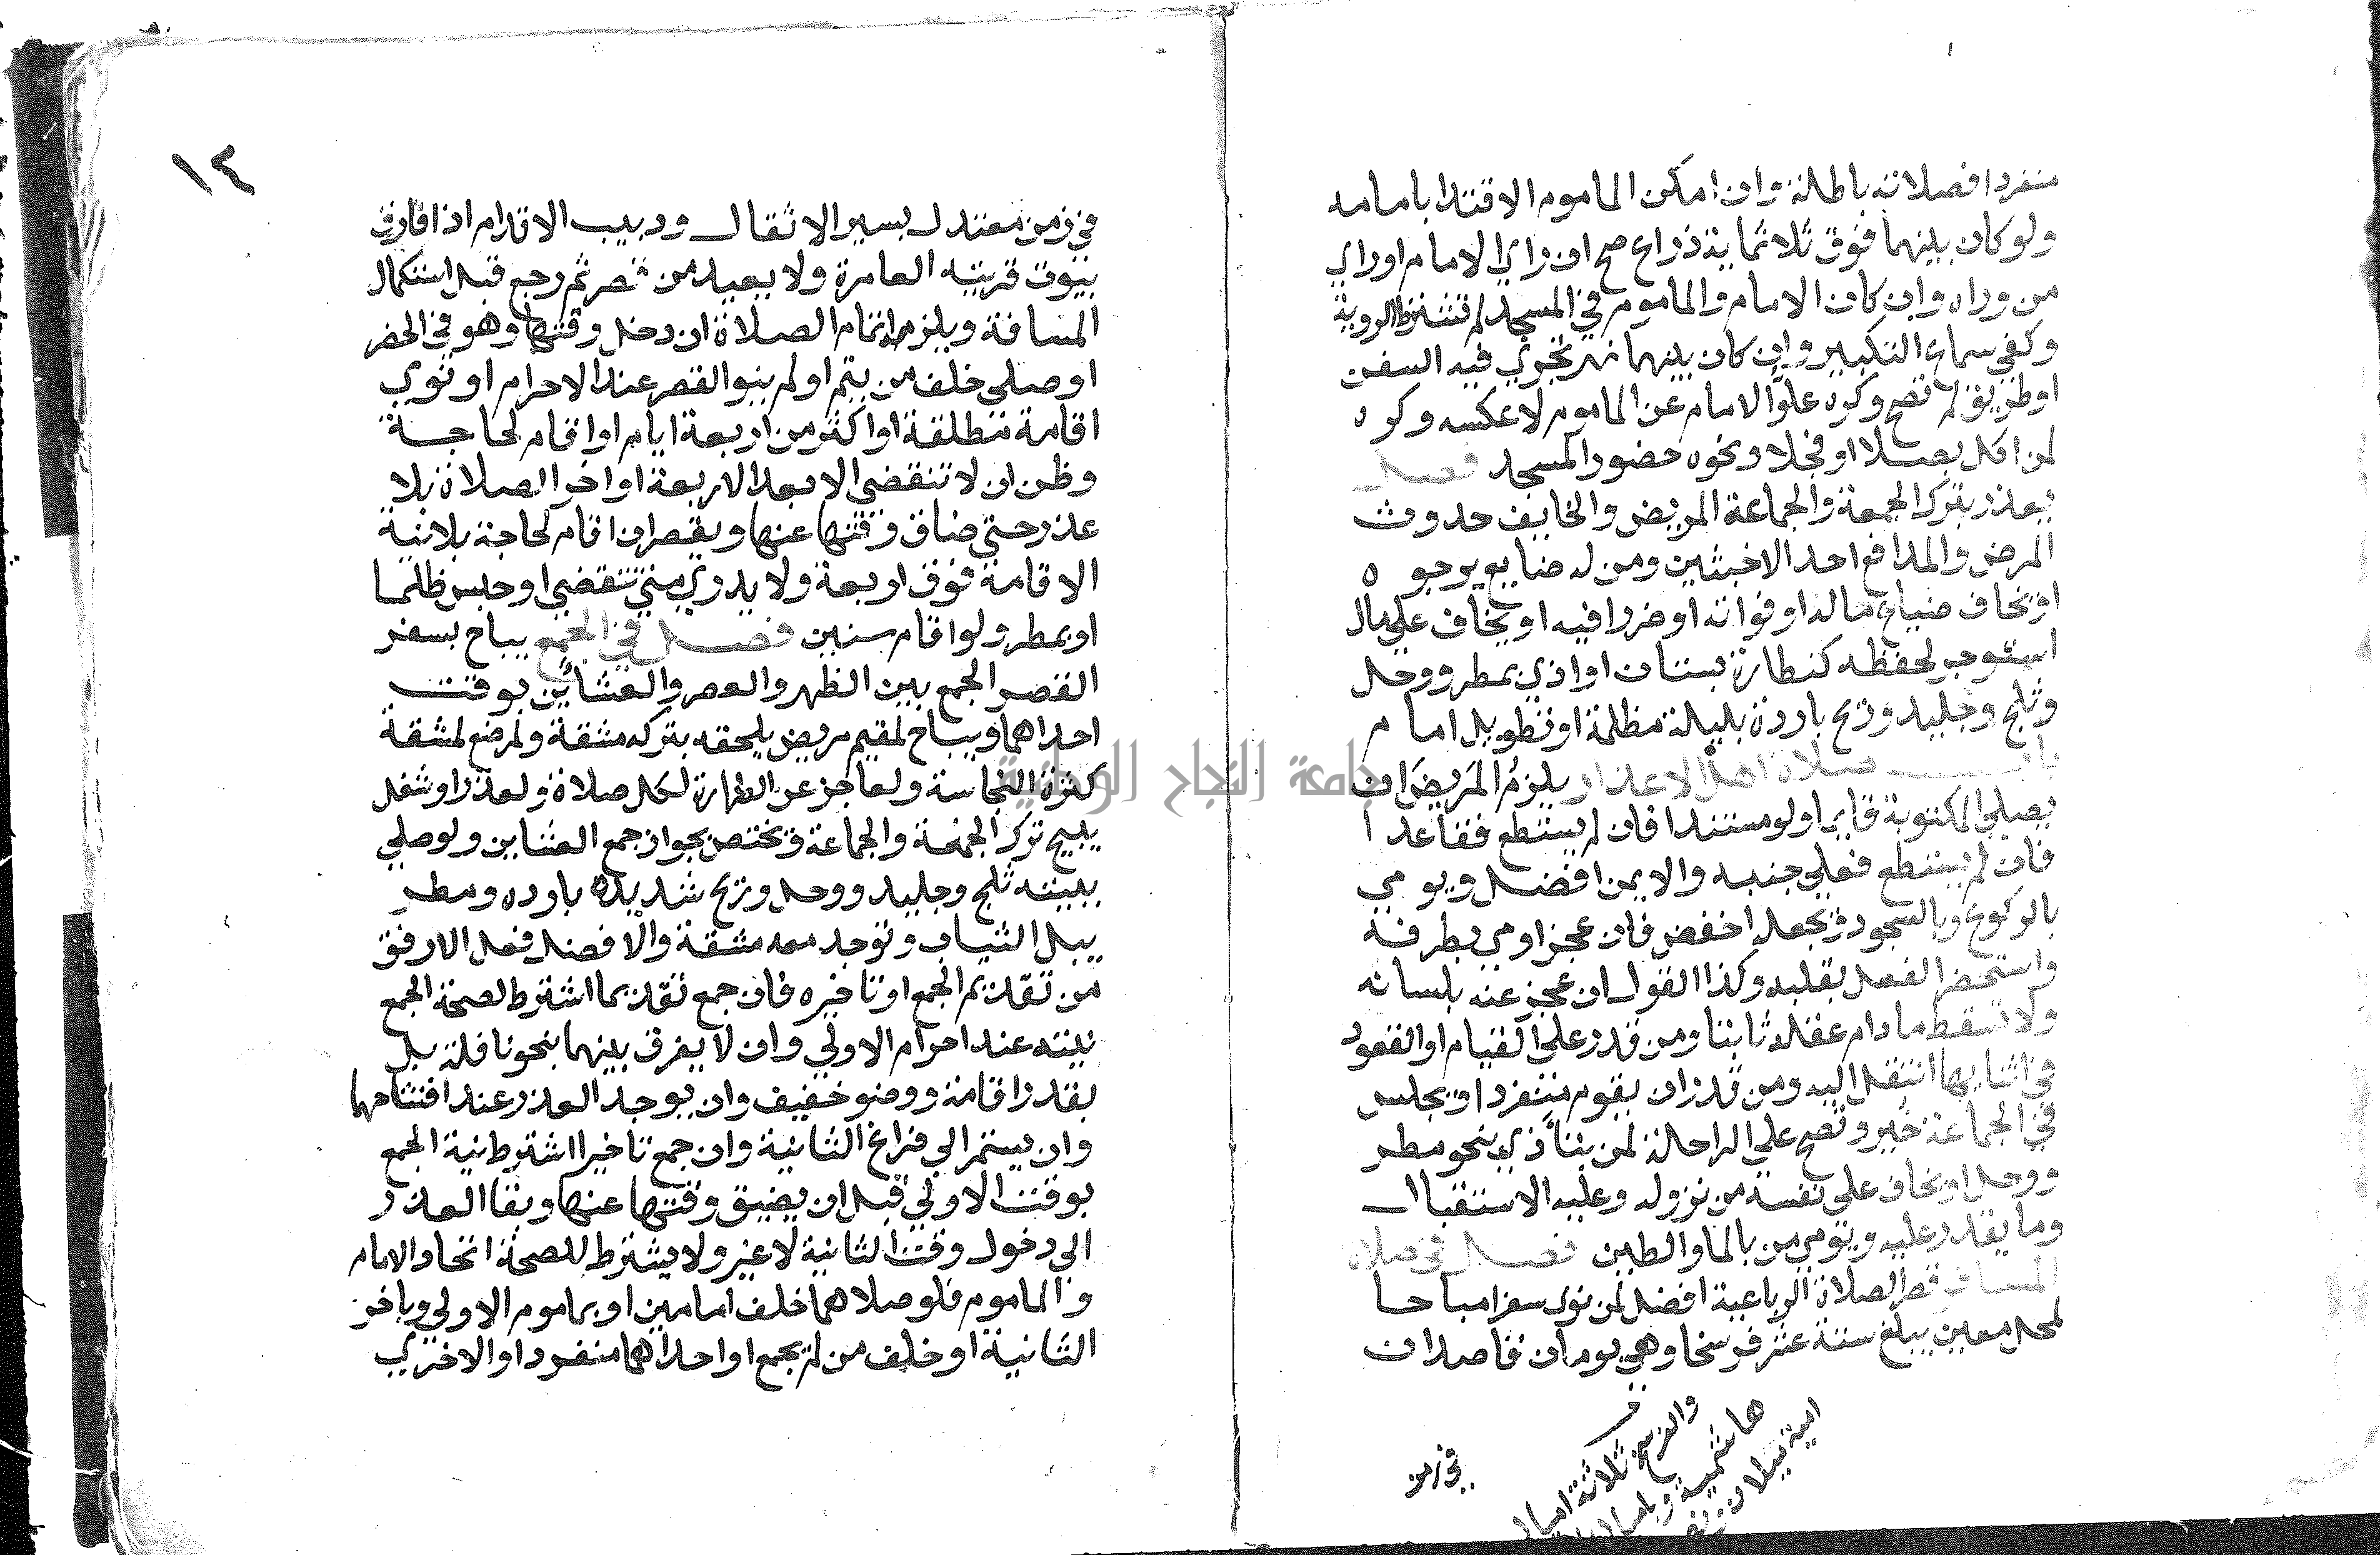 منفردا فصلاته باطلة وان امكن الماموم الاقتدا بامامه
ولو كان بينهما فوق ثلاثماية ذراع صح ان راي الامام او راي
من وراه وان كان الامام والماموم في المسجد لم تشترط الروية
وكفي سماع التكبير وان كان بينهما نهر تجري فيه السفن
او طريق لم تصح وكره علوّ الامام عن الماموم لا عكسه وكره
لمن اكل بصلا او فجلا ونحوه حضور المسجد فصل
يعذر بترك الجمعة والجماعة المريض والخايف حدوث
المرض والمدافع احد الاخبثين ومن له ضايع يرجوه
او يخاف ضياع ماله او فواته او ضررا فيه او يخاف علي مال
استوجر لحفظه كنطارة بستان او اذي بمطر ووحل
وثلج وجليد وريح باردة بليلة مظلمة او تطويل امام
باب صلاة اهل الاعذار يلزم المريض ان
يصلي المكتوبة قايما ولو مستندا فان لم يستطع فقاعدا
فان لم يستطع فعلي جنبه والايمن افضل ويومي
بالركوع وبالسجود ويجعله اخفض فان عجز اومي بطرفه
واستحضر الفعل بقلبه وكذا القول ان عجز عنه بلسانه
ولا تسقط مادام عقله ثابتا ومن قدر علي القيام او القعود
في اثنايها انتقل اليه ومن قدر ان يقوم منفردا او يجلس
في الجماعة خير وتصح علي الراحلة لمن يتأذي بنحو مطر
ووحل او يخاف علي نفسه من نزوله وعليه الاستقبال
وما يقدر عليه ويومي من بالما والطين فصل في صلاة
المسافر قصر الصلاة الرباعية افضل لمن نوي سفرا مباحا
لمحل معين يبلغ ستة عشر فرسخا وهي يومان قاصدان
والفرسخ ثلاثة اميال
هاشمية
في زمن
١٢
في زمن معتدل بسير الاثقال ودبيب الاقدام اذا فارق
بيوت قريته العامرة ولا يعيد من قصر ثم رجع قبل استكمال
المسافة ويلزم اتمام الصلاة ان دخل وقتها وهو في الحضر
او صلي خلف من يتم او لم ينو القصر عند الاحرام او نوي
اقامة مطلقة او اكثر من اربعة ايام او اقام لحاجة
وظن ان لا تنقضي الا بعد الاربعة او اخر الصلاة بلا
عذر حتي ضاق وقتها عنها ويقصر ان اقام لحاجة بلا نية
الاقامة فوق اربعة ولا يدري متي تنقضي او حبس ظلما
او بمطر ولو اقام سنين فصل في الجمع يباح بسفر
القصر الجمع بين الظهر والعصر والعشائين بوقت
احداهما ويباح لمقيم مريض يلحقه بتركه مشقة ولمرضع لمشقة
كثرة النجاسة ولعاجز عن الطهارة لكل صلاة ولعذر او شغل
يبيح ترك الجمعة والجماعة ويختص بجواز جمع العشاين ولو صلي
ببيته ثلج وجليد ووحل وريح شديدة بارده ومطر
يبل الثياب وتوجد معه مشقة والافضل فعل الارفق
من تقديم الجمع او تاخيره فان جمع تقديما اشترط لصحة الجمع
نيته عند احرام الاولي وان لا يفرق بينهما بنحو نافلة بل
بقدر اقامة ووضو خفيف وان يوجد العذر عند افتتاحهما
وان يستمر الي فراغ الثانية وان جمع تاخيرا اشترط نية الجمع
بوقت الاولي قبل ان يضيق وقتها عنها وبقا العذر
الي دخول وقت الثانية لا غير ولا يشترط للصحة اتحاد الامام
والماموم فلو صلاهما خلف امامين او بماموم الاولي وباخر
الثانية او خلف من لم يجمع او احداهما منفردا والاخري
جامعة النجاح الوطنية